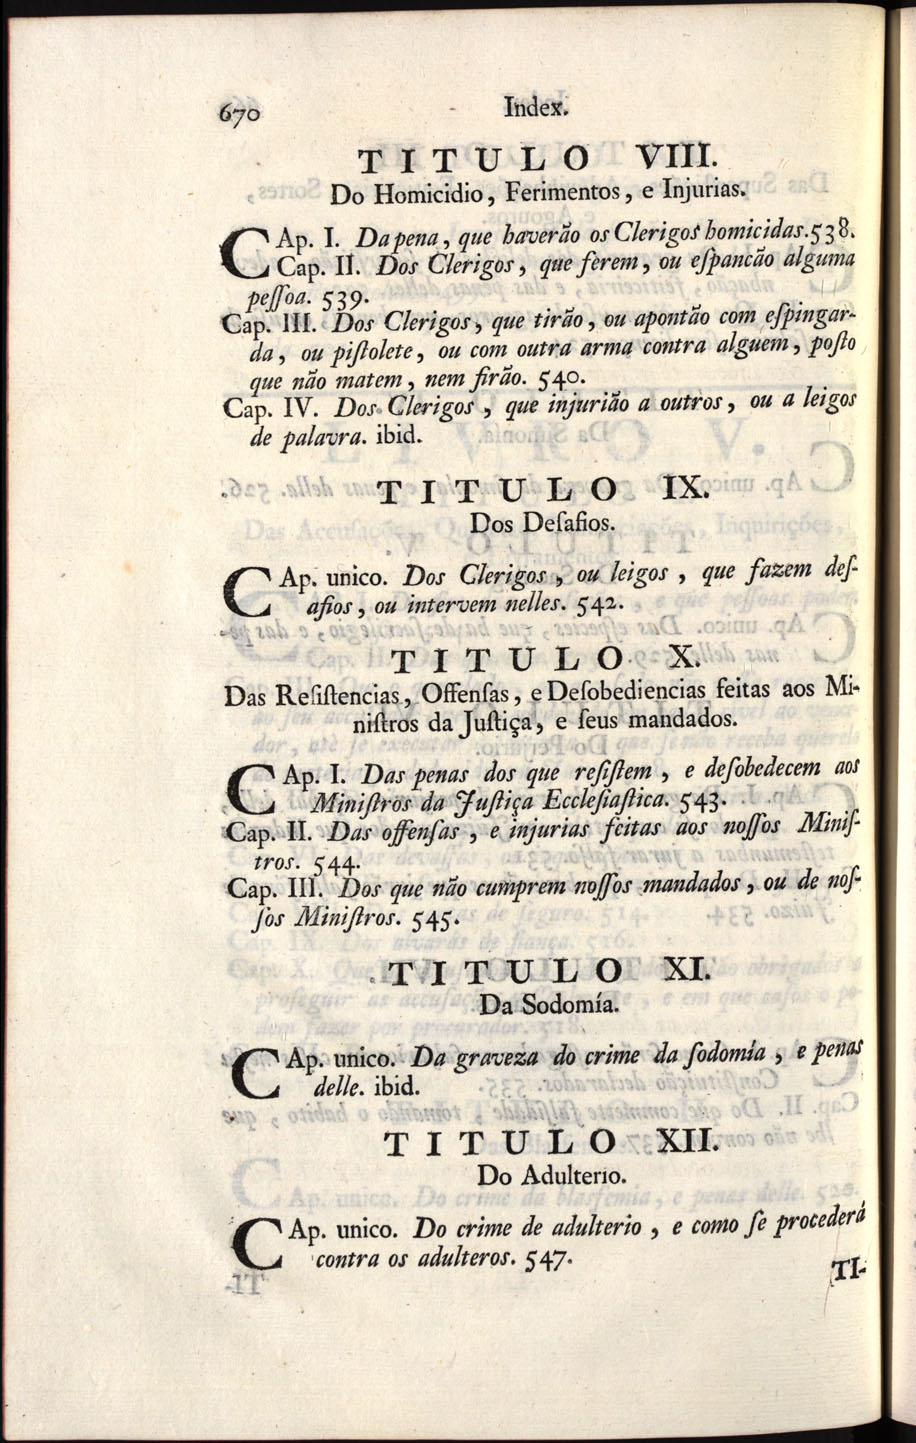 670 Index.
TITULO VIII.
Do Homicidio, Ferimentos, e Injurias.
CAp. I. Da pena, que haverão os Clerigos homicidas. 538.
Cap. II. Dos Clerigos, que ferem, ou eſpancão alguma
peſſoa. 539.
Cap. III. Dos Clerigos, que tirão, ou apontão com eſpingar-
da, ou piſtolete, ou com outra arma contra alguem, poſto
que não matem, nem firão. 540.
Cap. IV. Dos Clerigos, que injurião a outros, ou a leigos
de palavra. ibid.
TITULO IX.
Dos Deſafios.
CAp. unico. Dos Clerigos, ou leigos, que fazem deſ-
afios, ou intervem nelles. 542.
TITULO X.
Das Reſiſtencias, Offenſas, e Deſobediencias feitas aos Mi-
niſtros da Juſtiça, e ſeus mandados.
CAp. I. Das penas dos que reſiſtem, e deſobedecem aos
Miniſtros da Juſtiça Eccleſiaſtica. 543.
Cap. II. Das offenſas, e injurias feitas aos noſſos Miniſ-
tros. 544.
Cap. III. Dos que não cumprem noſſos mandados, ou de noſ-
ſos Miniſtros. 545.
TITULO XI.
Da Sodomía.
CAp. unico. Da graveza do crime da ſodomía, e penas
delle. ibid.
TITULO XII.
Do Adulterio.
CAp. unico. Do crime de adulterio, e como ſe procederá
contra os adulteros. 547.
TI-